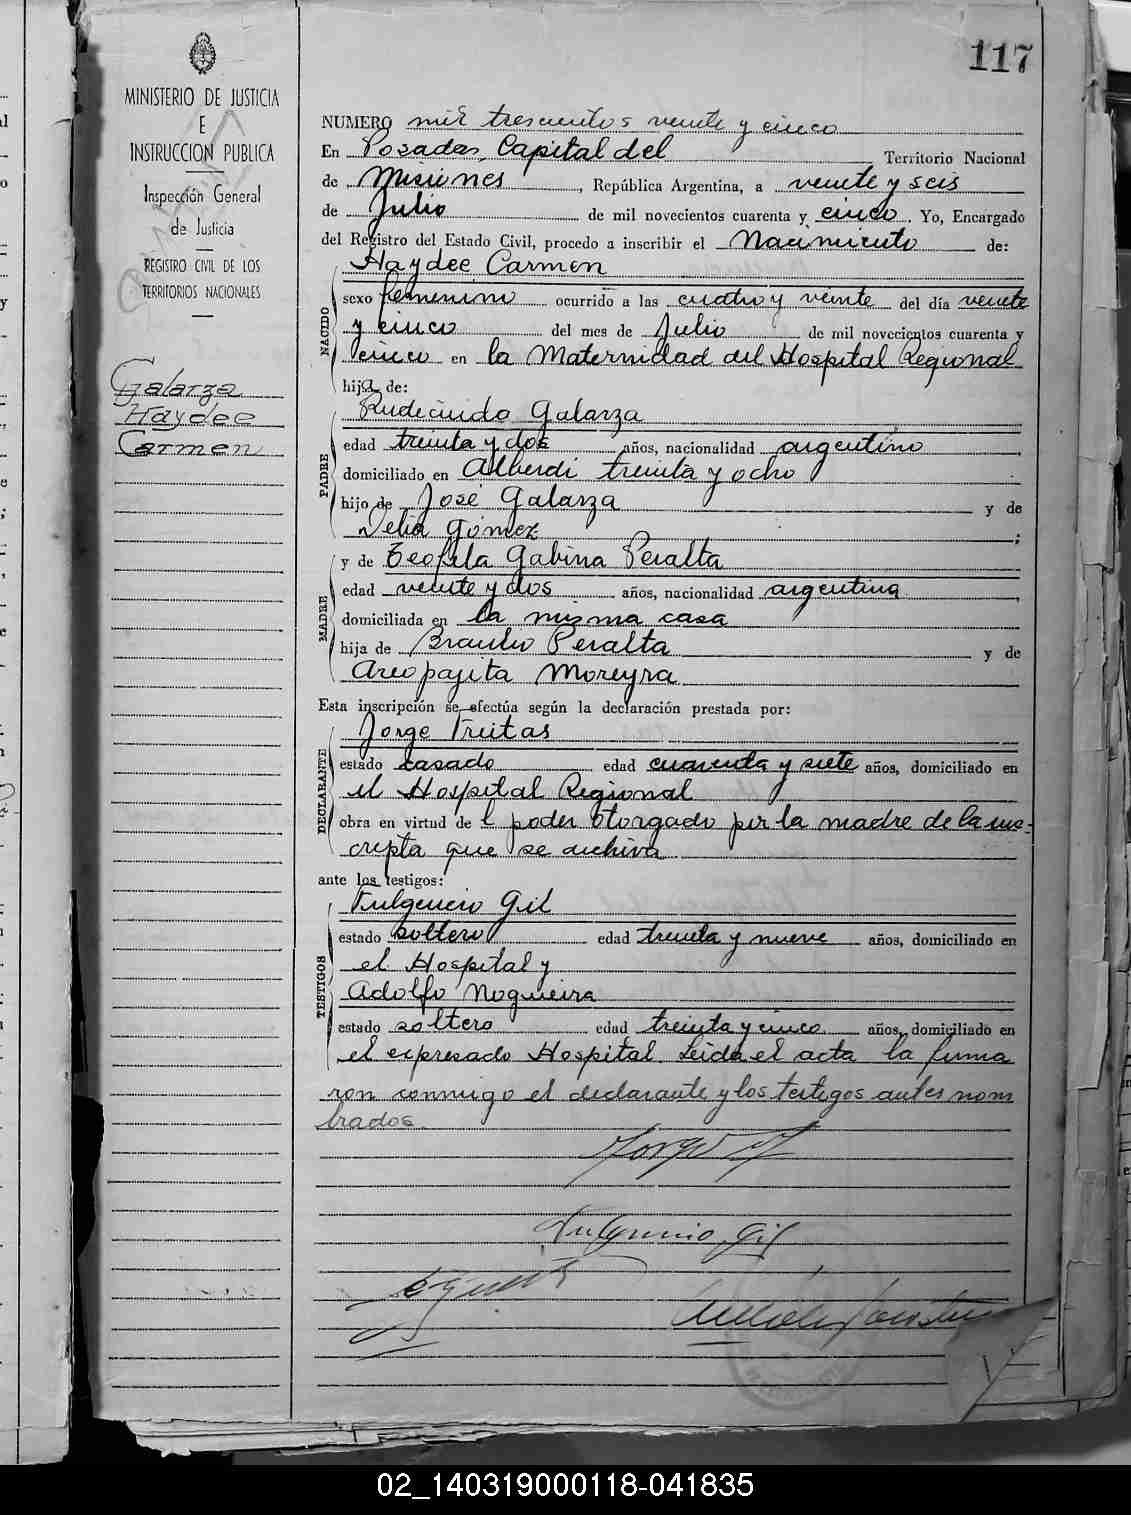 117
MINISTERIO DE JUSTICIA
E
INSTRUCCION PUBLICA
Inspección General
de Justicia
REGISTRO CIVIL DE LOS
TERRITORIOS NACIONALES
Galarza
Haydee
Carmen
NUMERO mil trescientos veinte y cinco
En Posadas, Capital del Territorio Nacional
de Misiones, República Argentina, a veinte y seis
de Julio de mil novecientos cuarenta y cinco. Yo, Encargado
del Registro del Estado Civil, procedo a inscribir el Nacimiento de:
Haydee Carmen
NACIDO
sexo femenino ocurrido a las cuatro y veinte del día veinte
y cinco del mes de Julio de mil novecientos cuarenta y
cinco en la Maternidad del Hospital Regional
hija de:
PADRE
Rudecindo Galarza
edad treinta y dos años, nacionalidad argentino
domiciliado en Alberdi treinta y ocho
hijo de José Galarza y de
Delia Gómez;
MADRE
y de Teofila Gabina Peralta
edad veinte y dos años, nacionalidad argentina
domiciliada en la misma casa
hija de Braulio Peralta y de
Areopajita Moreyra
Esta inscripción se efectúa según la declaración prestada por:
DECLARANTE
Jorge Freitas
estado casado edad cuarenta y siete años, domiciliado en
el Hospital Regional
obra en virtud de l poder otorgado por la madre de la ins-
cripta que se archiva
ante los testigos:
TESTIGOS
Fulgencio Gil
estado soltero edad treinta y nueve años, domiciliado en
el Hospital y
Adolfo Nogueira
estado soltero edad treinta y cinco años, domiciliado en
el expresado Hospital. Leida el acta la firma
ron conmigo el declarante y los testigos antes nom
brados.
Jorge
Fulgencio Gil
02_140319000118-041835